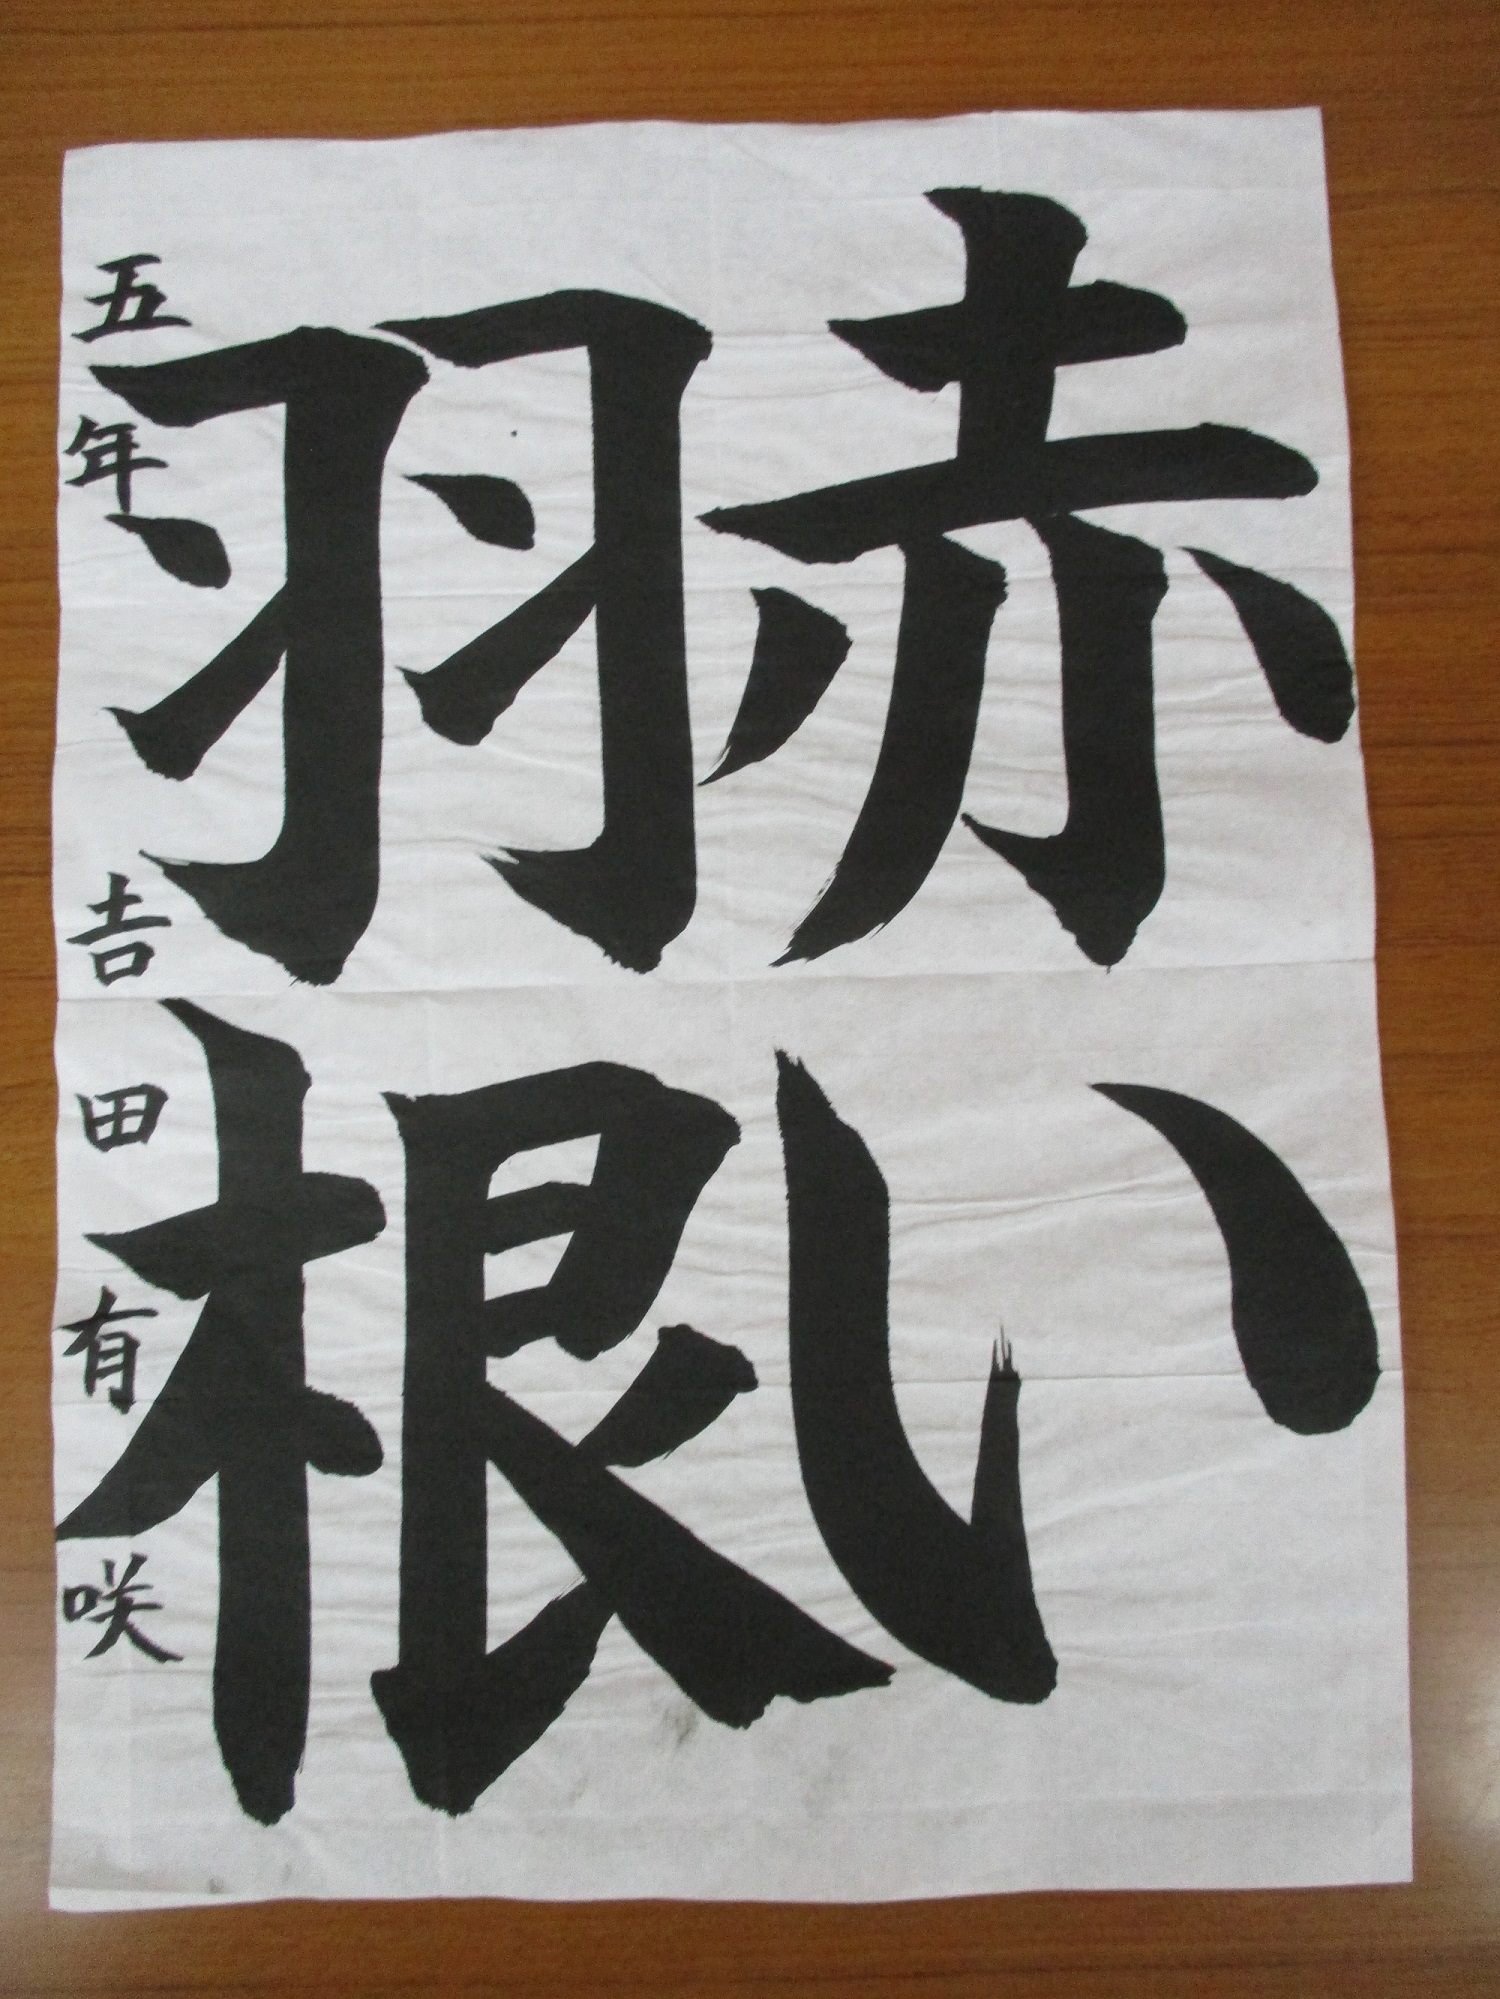 赤い
羽根
五年 吉田有咲